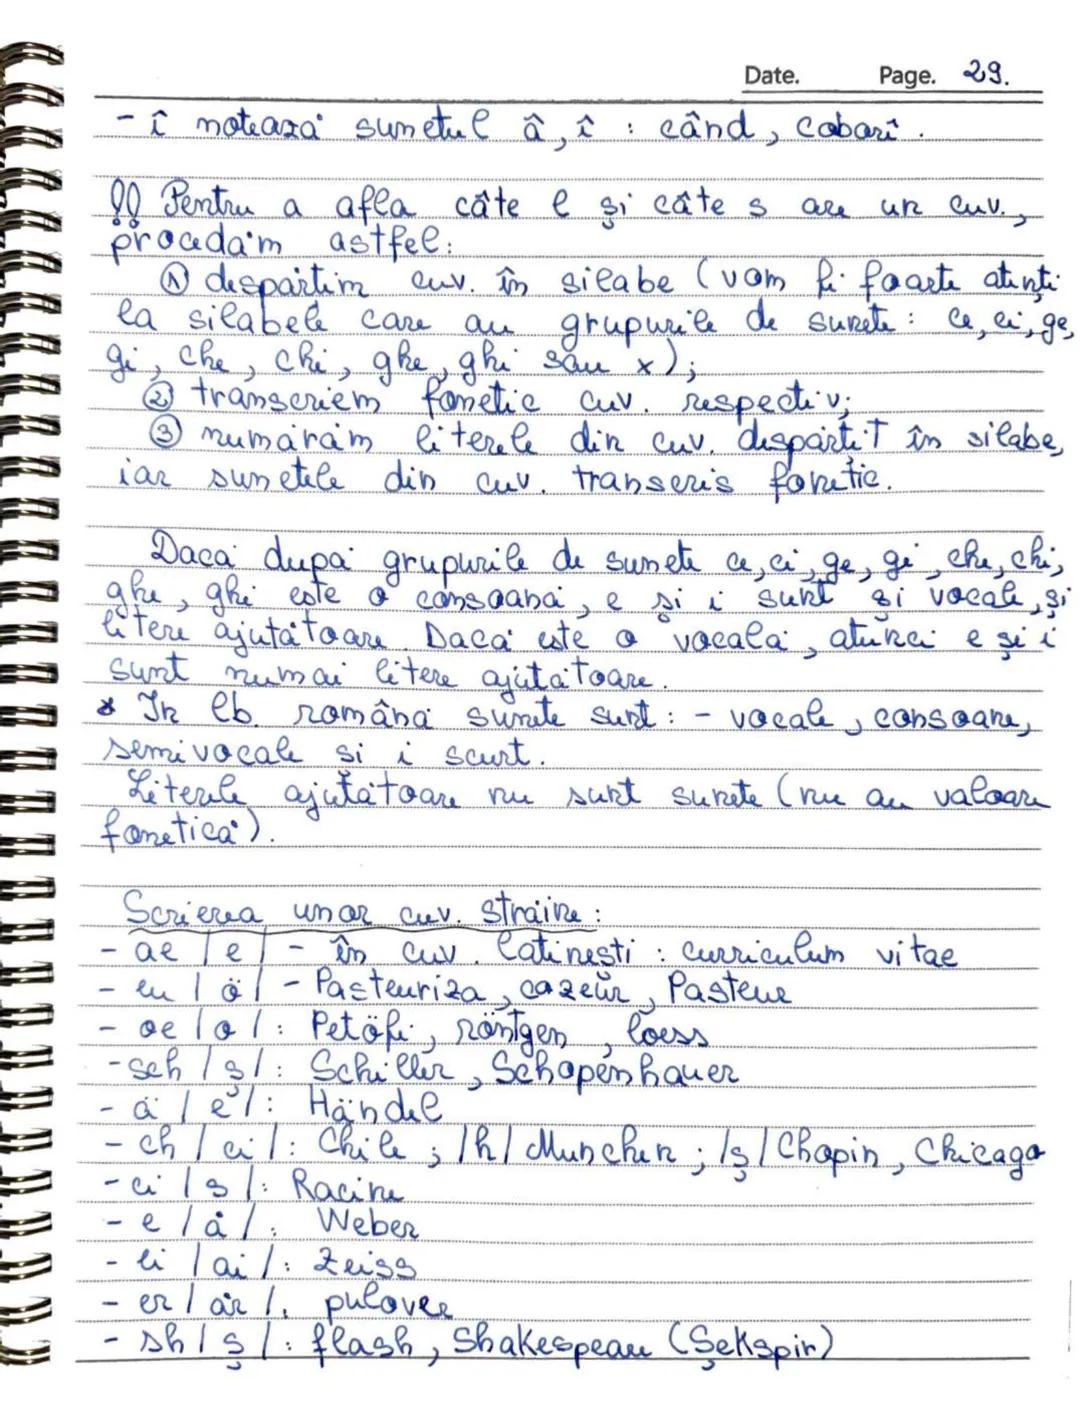 Date. Page. 29.
- î notează sunetul â, î : când, coborî.
!! Pentru a afla câte l și câte s are un cuv.,
procedăm astfel:
① despărțim cuv. în silabe (vom fi foarte atenți
la silabele care au grupurile de sunete: ce, ci, ge,
gi, che, chi, ghe, ghi sau x);
② transcriem fonetic cuv. respectiv;
③ numărăm literele din cuv. despărțit în silabe,
iar sunetele din cuv. transcris fonetic.
Dacă după grupurile de sunete ce, ci, ge, gi, che, chi,
ghe, ghi este o consoană, e și i sunt și vocale, și
litere ajutătoare. Dacă este o vocală, atunci e și i
sunt numai litere ajutătoare.
* In lb. română sunete sunt: - vocale, consoane,
semivocale si i scurt.
Literele ajutătoare nu sunt sunete (nu au valoare
fonetică).
Scrierea unor cuv. străine:
- ae / e / - în cuv. latinești : curriculum vitae
- eu / ö / - Pasteuriza, cozeur, Pasteur
- oe / o / : Petöfi, röntgen, loess
- sch / ș / : Schiller, Schopenhauer
- ä / e / : Händel
- ch / ci / : Chile ; /h/ Munchen ; /ș/ Chopin, Chicago
- ci / s / : Racine
- e / ă / : Weber
- ei / ai / : Zeiss
- er / ăr / : pulover
- sh / ș / : flash, Shakespeare (Șekspir)